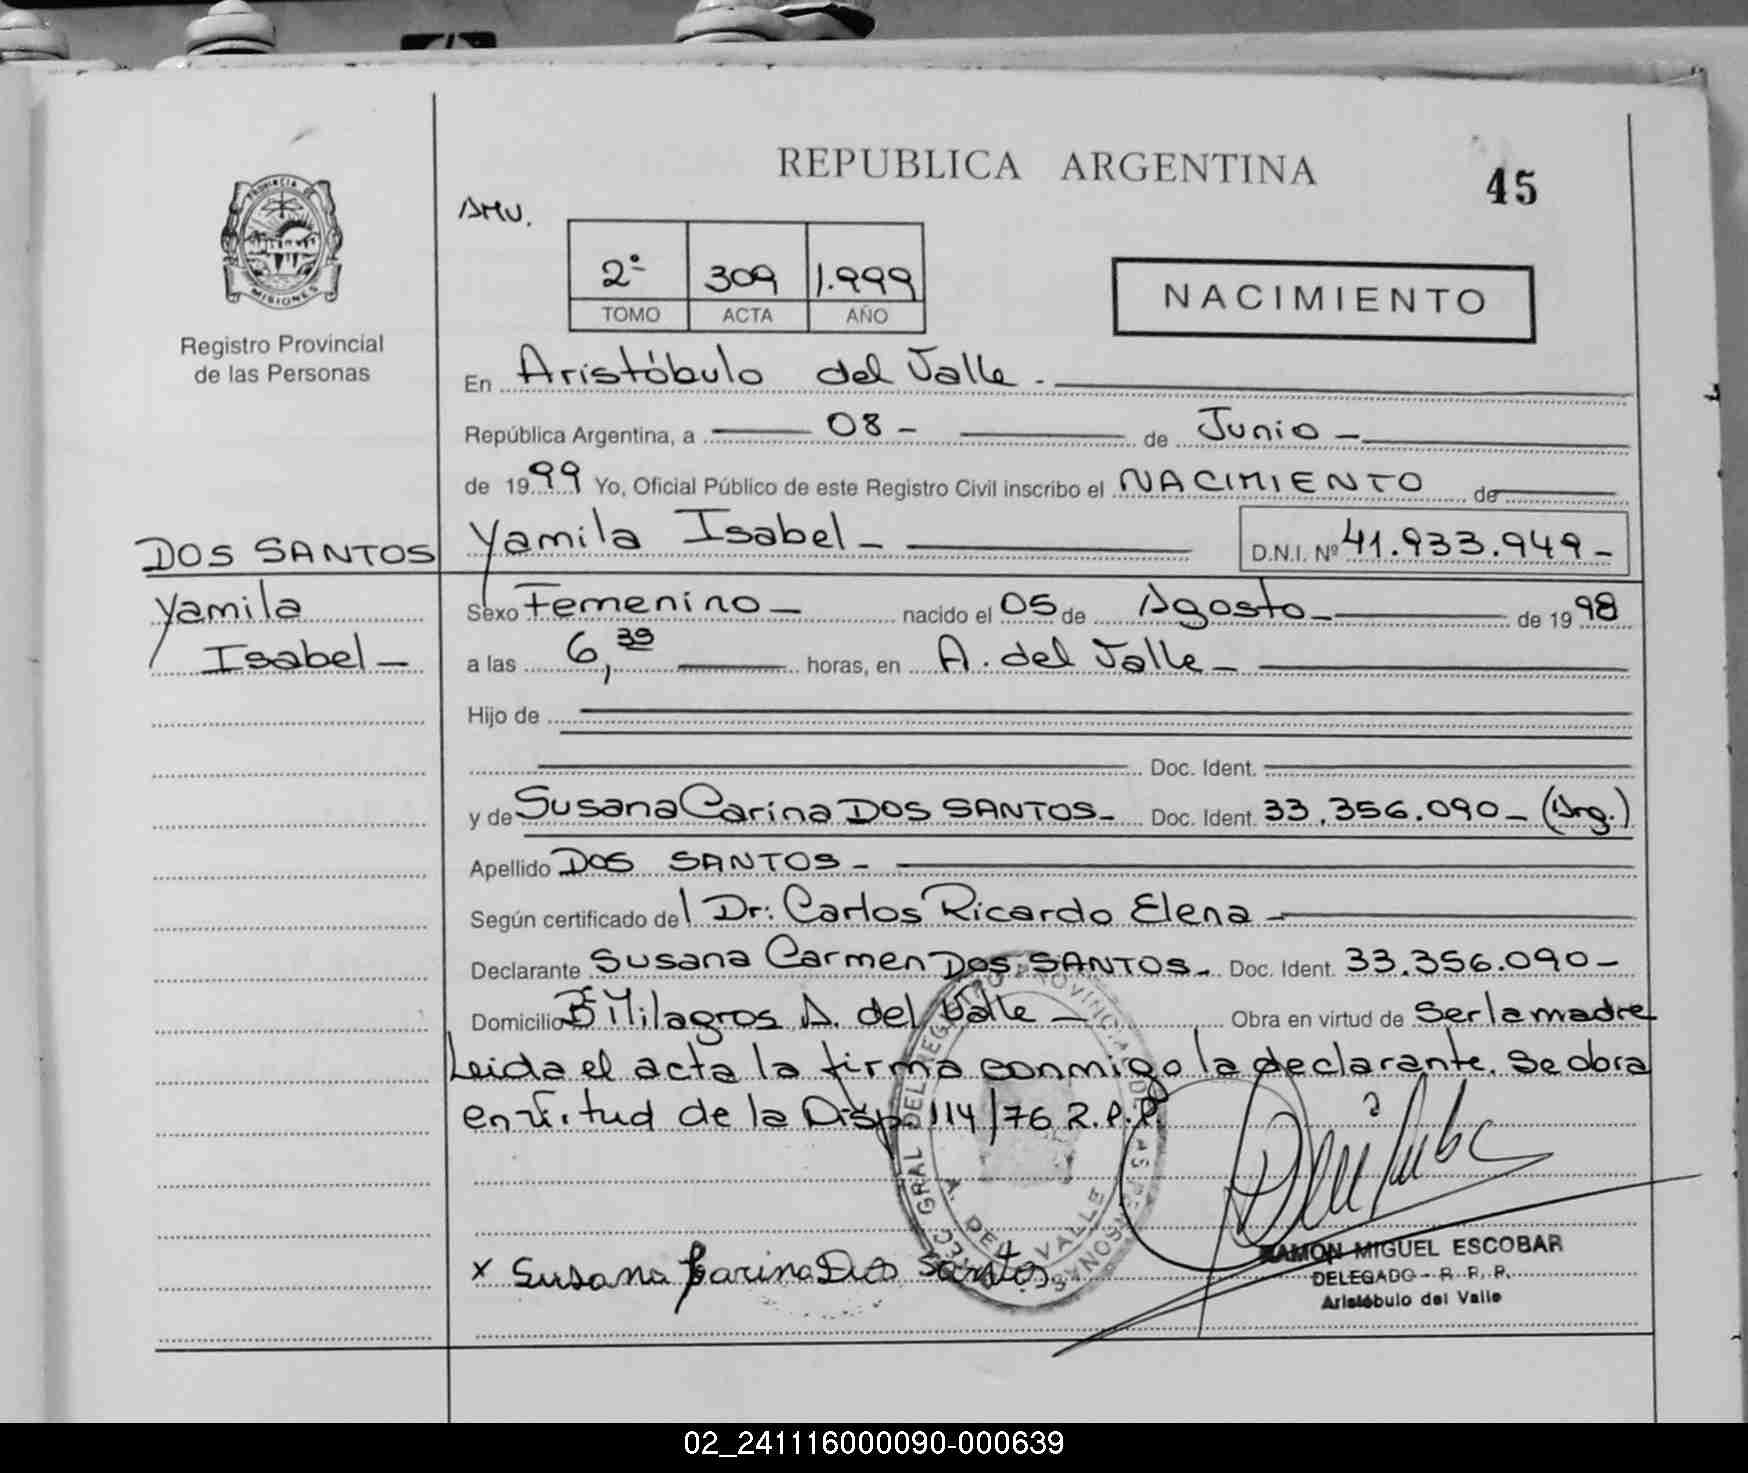 REPUBLICA ARGENTINA
45
AMV.
2º 309 1.999
TOMO ACTA AÑO
NACIMIENTO
PROVINCIA DE
MISIONES
Registro Provincial
de las Personas
En Aristóbulo del Valle.
República Argentina, a 08 - de Junio -
de 1999 Yo, Oficial Público de este Registro Civil inscribo el NACIMIENTO de
DOS SANTOS
Yamila
Isabel -
Yamila Isabel - D.N.I. Nº 41.933.949 -
Sexo Femenino - nacido el 05 de Agosto - de 1998
a las 6,30 horas, en A. del Valle -
Hijo de
Doc. Ident.
y de Susana Carina DOS SANTOS - Doc. Ident. 33.356.090 - (Arg.)
Apellido DOS SANTOS -
Según certificado del Dr: Carlos Ricardo Elena -
Declarante Susana Carmen DOS SANTOS - Doc. Ident. 33.356.090 -
Domicilio Bº Milagros A. del Valle - Obra en virtud de Ser la madre
Leida el acta la firma conmigo la declarante. Se obra
en virtud de la Disp. 114/76 R.P.P.
DIREC. GRAL DEL REGISTRO PROVINCIAL DE LAS PERSONAS
A. DEL VALLE
x Susana Carina Dos Santos
RAMON MIGUEL ESCOBAR
DELEGADO - R. P. P.
Aristóbulo del Valle
02_241116000090-000639